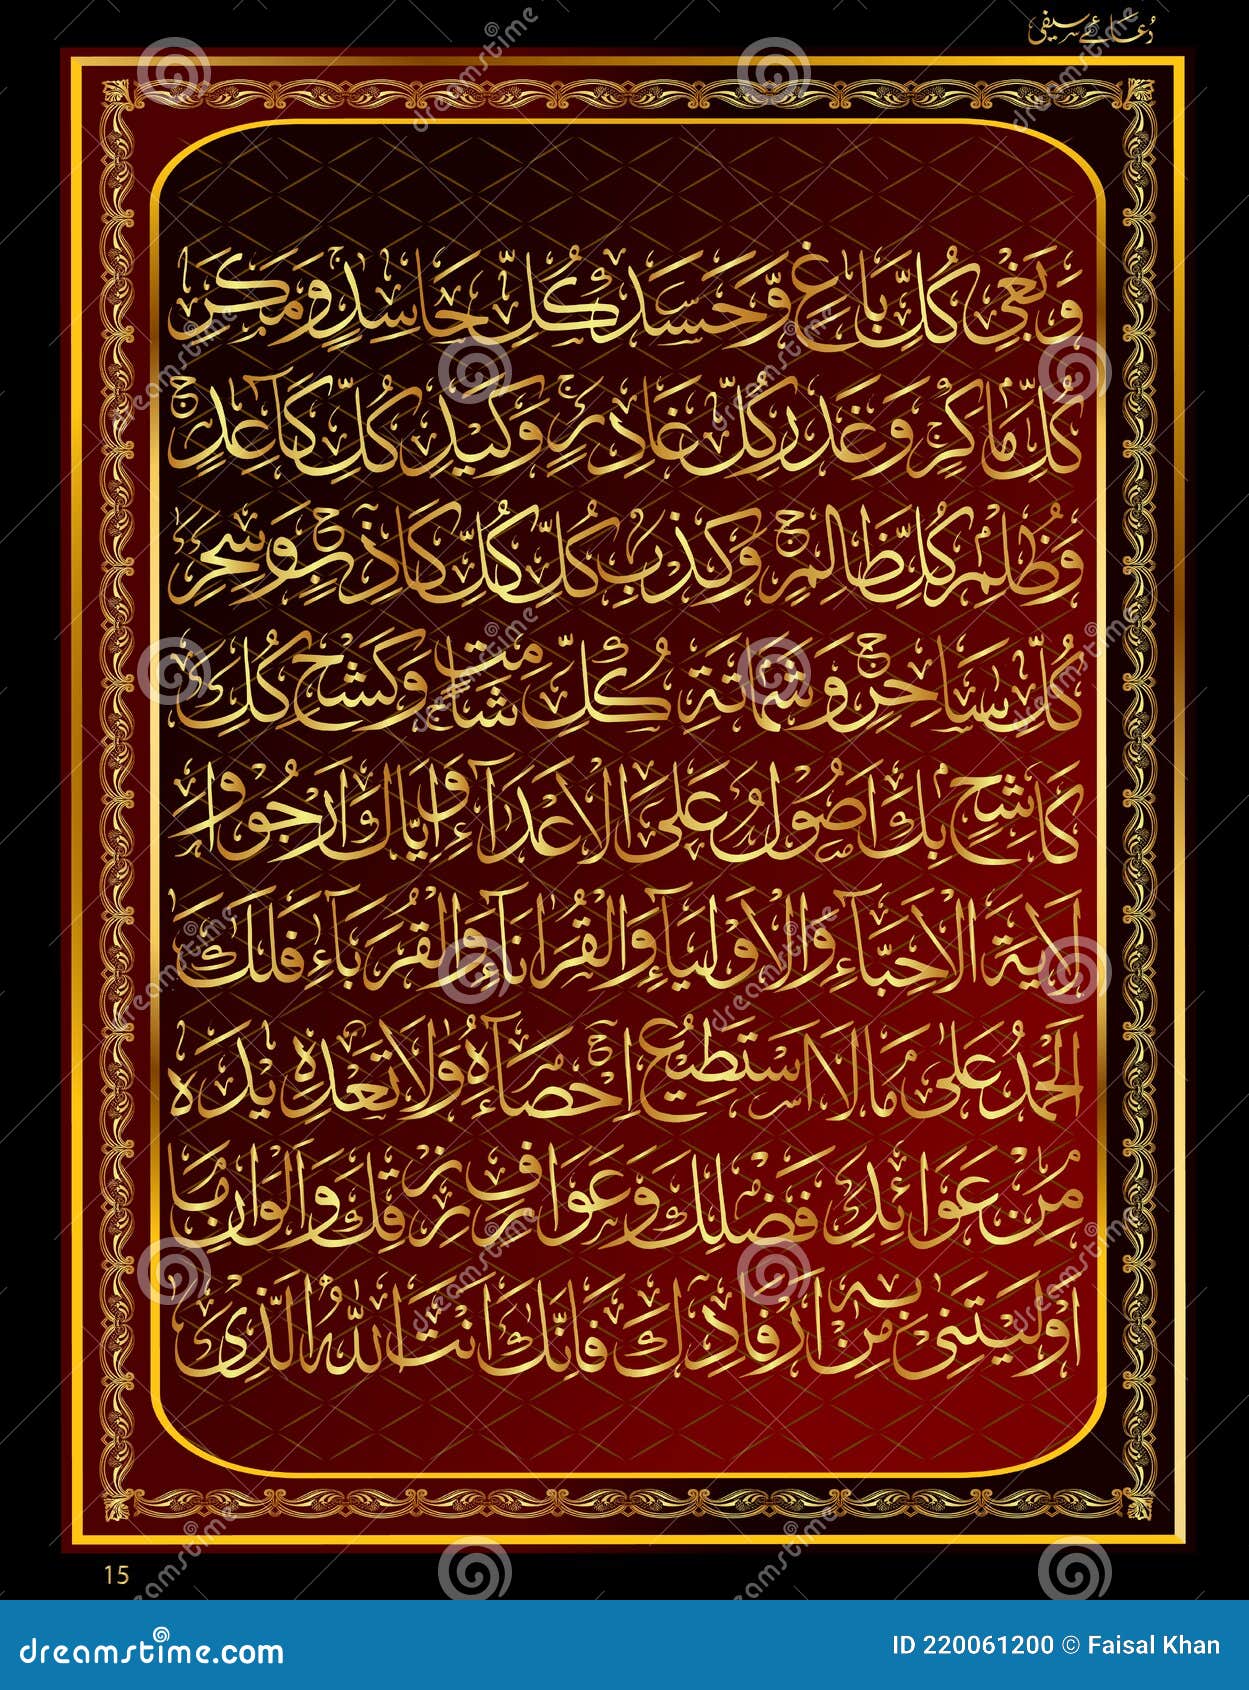 دُعائے سیفی
وَبَغْیِ كُلِّ بَاغٍ وَّحَسَدِ كُلِّ حَاسِدٍ وَمَكْرِ
كُلِّ مَاكِرٍ وَغَدْرِ كُلِّ غَادِرٍ وَكَيْدِ كُلِّ كَآئِدٍ
وَظُلْمِ كُلِّ ظَالِمٍ وَكَذِبِ كُلِّ كُلِّ كَاذِبٍ وَسِحْرِ
كُلِّ سَاحِرٍ وَشَمَاتَةِ كُلِّ شَامِتٍ وَكَشْحِ كُلِّ
كَاشِحٍ بِكَ اَصُوْلُ عَلَی الْاَعْدَآءِ وَاِيَّاكَ اَرْجُوْا وِ
لَايَةَ الْاَحِبَّآءِ وَالْاَوْلِيَآءِ وَالْقُرَنَآءِ وَالْقُرَبَآءِ فَلَكَ
الْحَمْدُ عَلٰی مَا لَا اَسْتَطِيْعُ اِحْصَآءَهٗ وَلَا تَعْدِيْدَهٗ
مِنْ عَوَائِدِ فَضْلِكَ وَعَوَارِفِ رِزْقِكَ وَاَلْوَانِ مَا
اَوْلَيْتَنِیْ بِهٖ مِنْ اَرْفَادِكَ فَاِنَّكَ اَنْتَ اللّٰهُ الَّذِیْ
15
dreamstime.com
ID 220061200 © Faisal Khan